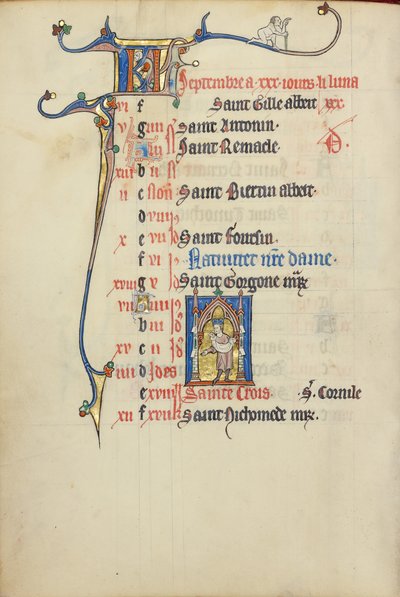 KL Septembre a·xxx·iours·li luna
xvi f Saint Gille abbeit xxx·
v g iiii Saint Antonin·
A iii Saint Remacle· D·
xiii b ii
ii c Non Saint Biertin abbeit·
d viii
x e vii Saint Foursin·
f vi Nativitet nre dame·
xviii g v Saint Gorgone
vii A iiii
b iii id
xv c ii id
iiii d Ides
e xviii Sainte Crois· S· Cornile
xii f xvii Saint Nichomede